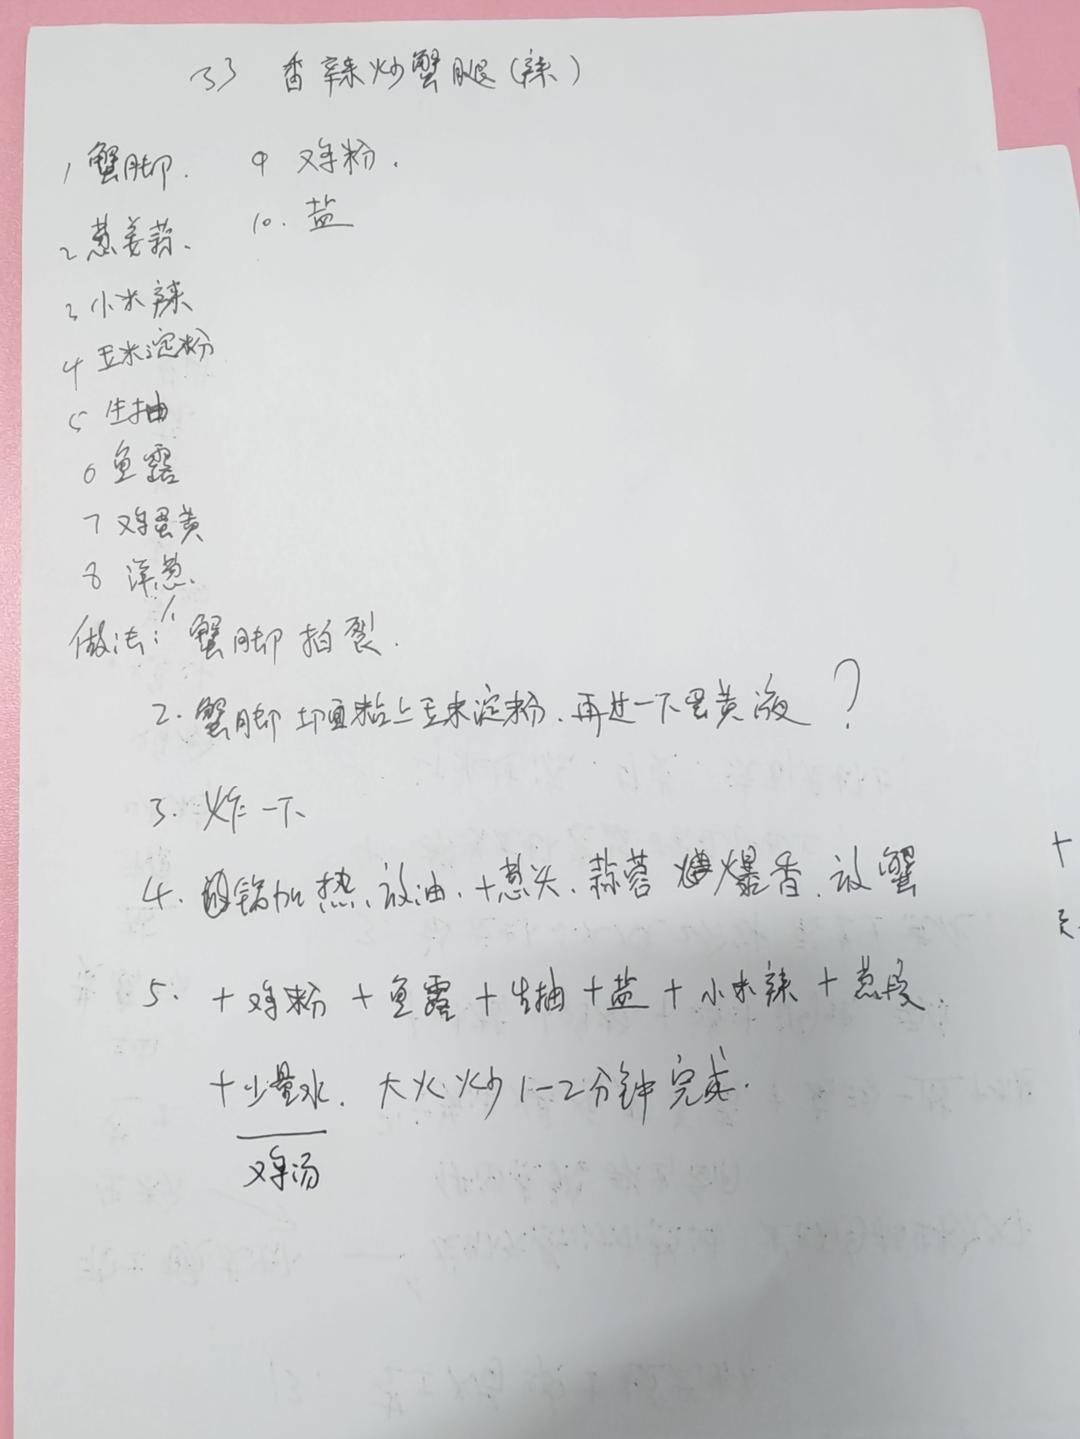 33 香辣炒蟹腿(辣)
1 蟹脚.
2 葱姜蒜.
3 小米辣
4 玉米淀粉
5 生抽
6 鱼露
7 鸡蛋黄
8 洋葱.
9 鸡粉.
10. 盐
做法: 1. 蟹脚拍裂.
2. 蟹脚切面粘上玉米淀粉.再过一下蛋黄液?
3. 炸一下
4. 锅加热.放油.+葱头.蒜蓉爆香.放蟹
5. +鸡粉+鱼露+生抽+盐+小米辣+葱段.
+少量水. 大火炒1-2分钟完成.
鸡汤